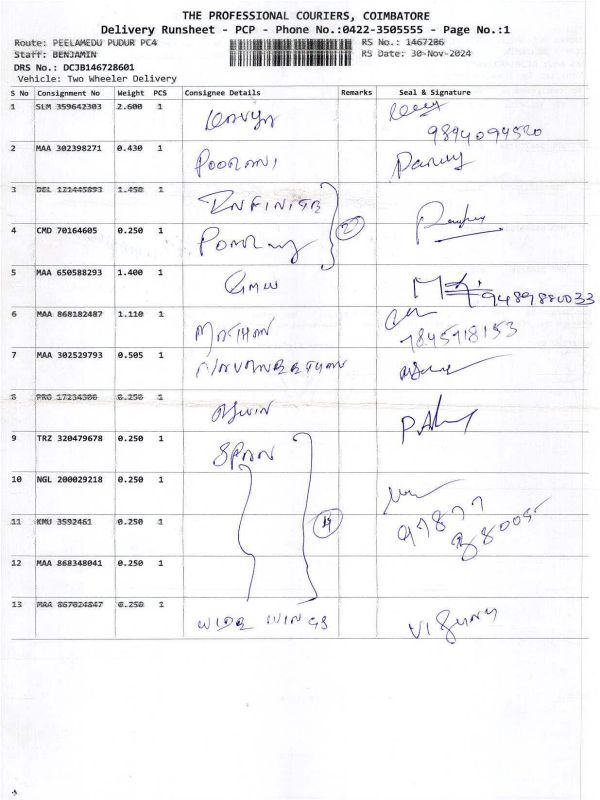 THE PROFESSIONAL COURIERS, COIMBATORE
Delivery Runsheet - PCP - Phone No.:0422-3505555 - Page No.:1
Route: PEELAMEDU PUDUR PC4 RS No.: 1467286
Staff: BENJAMIN RS Date: 30-Nov-2024
DRS No.: DCJB146728601
Vehicle: Two Wheeler Delivery
S No Consignment No Weight PCS Consignee Details Remarks Seal & Signature
1 SLM 359642303 2.600 1 Kavya
9894094520
2 MAA 302398271 0.430 1 POORANI
3 DEL 121445893 1.450 1 INFINITE
4 CMD 70164605 0.250 1
5 MAA 650588293 1.400 1
9489880033
6 MAA 868182487 1.110 1 MATHAN
7845918153
7 MAA 302529793 0.505 1
8 PRO 17234306 0.250 1 ASWIN
9 TRZ 320479678 0.250 1 SPAN
10 NGL 200029218 0.250 1
11 KMU 3592461 0.250 1 4 97877
12 MAA 868348041 0.250 1
13 MAA 867024847 0.250 1 WIDE WINGS